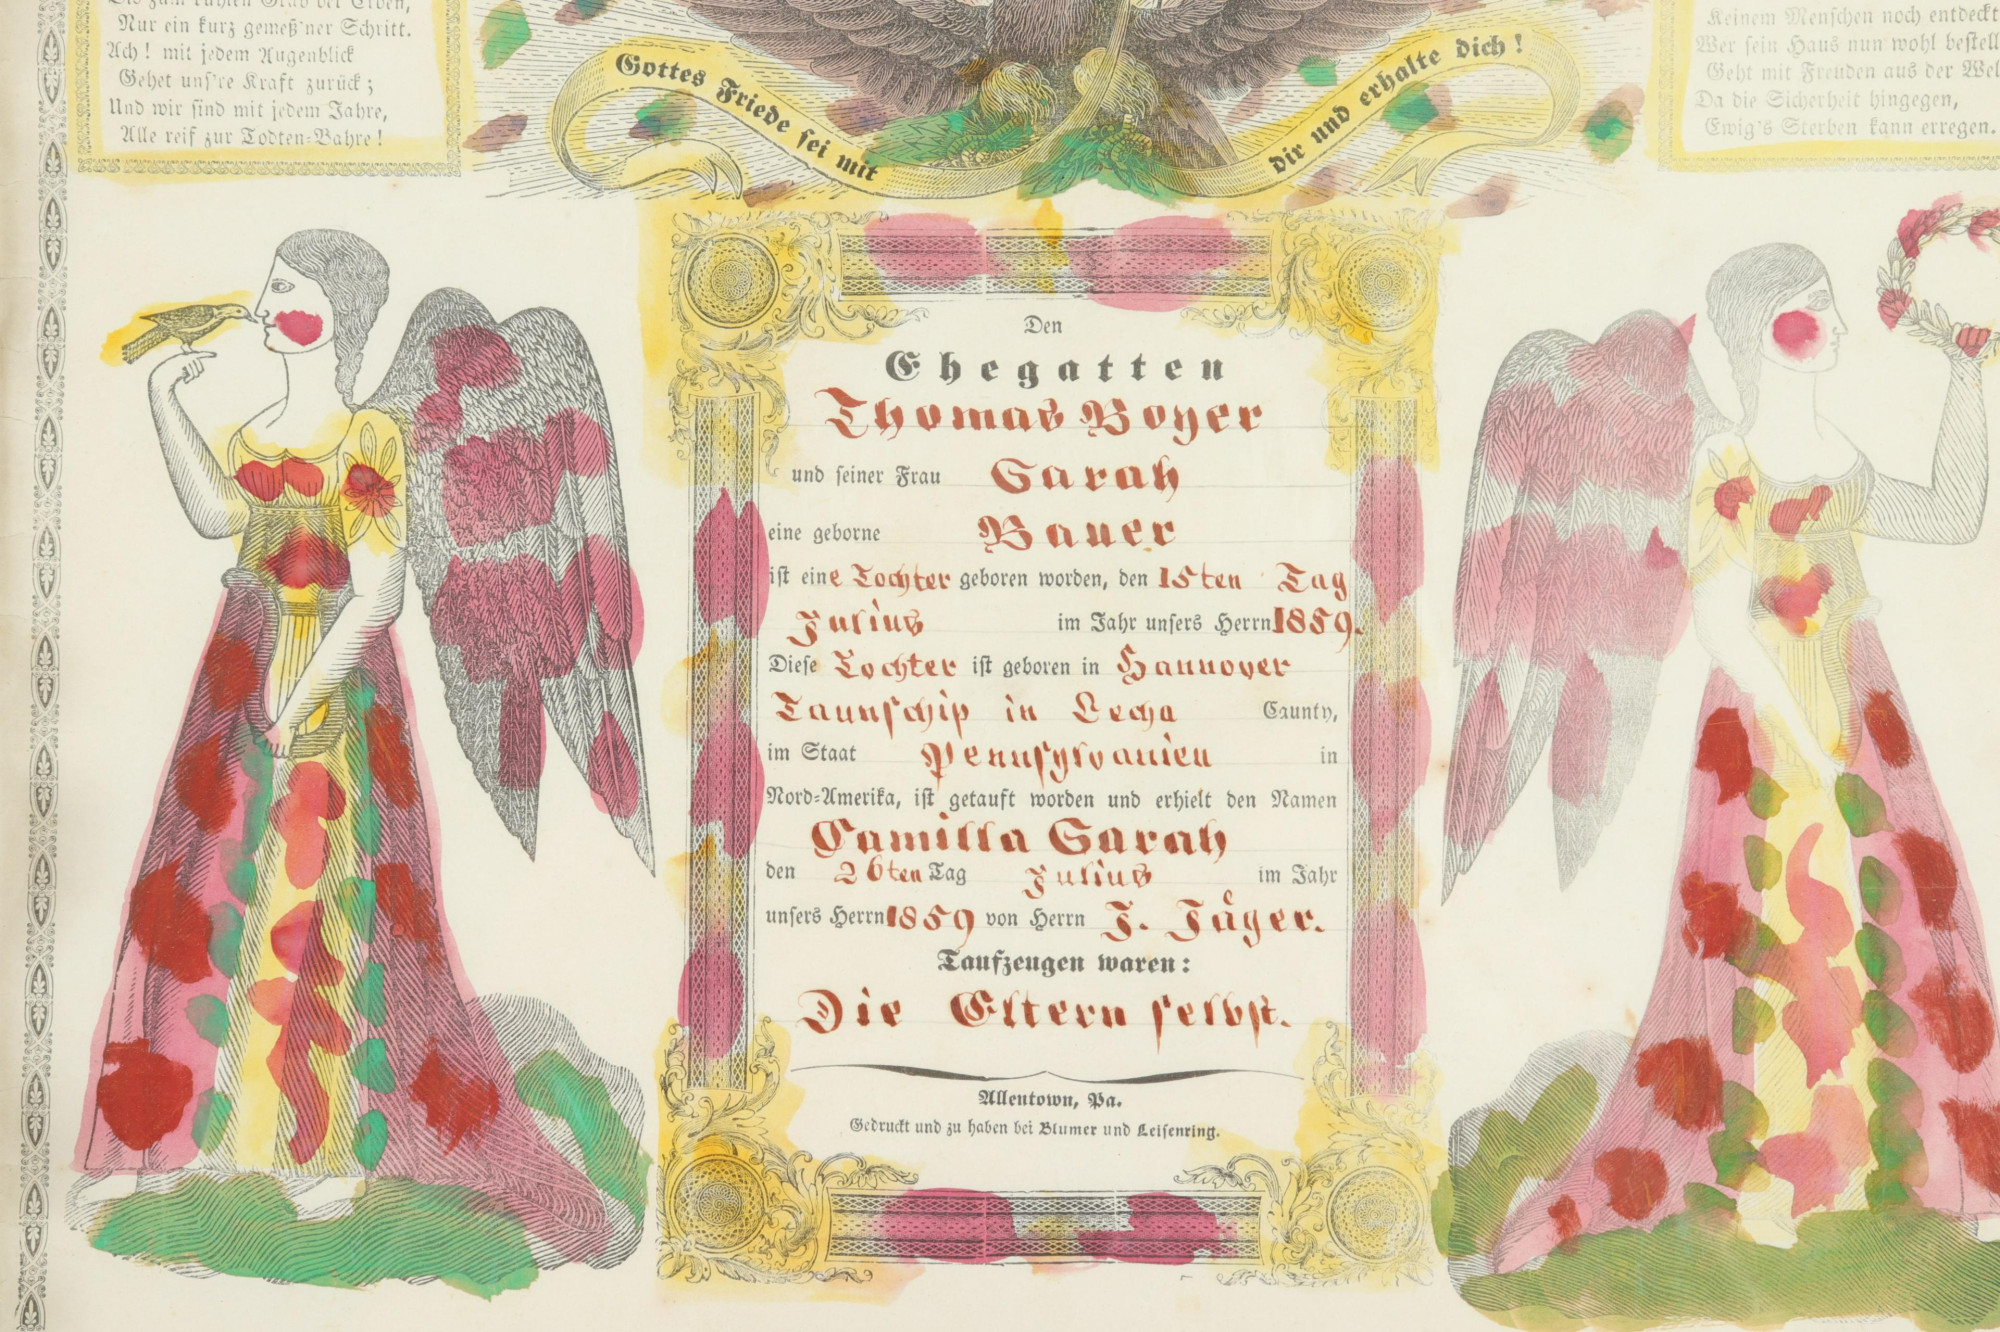 Nur ein kurz gemeß'ner Schritt.
Ach! mit jedem Augenblick
Gehet uns're Kraft zurück;
Und wir sind mit jedem Jahre,
Alle reif zur Todten-Bahre!
Gottes Friede sei mit dir und erhalte dich!
Keinem Menschen noch entdeckt
Wer sein Haus nun wohl bestell
Geht mit Freuden aus der Wel
Da die Sicherheit hingegen,
Ewig's Sterben kann erregen.
Den
Ehegatten
Thomas Boyer
und seiner Frau Sarah
eine geborne Bauer
ist eine Tochter geboren worden, den 15ten Tag
Julius im Jahr unsers Herrn 1859.
Diese Tochter ist geboren in Hannover
Taunschip in Lecha Caunty,
im Staat Pennsylvanien in
Nord-Amerika, ist getauft worden und erhielt den Namen
Camilla Sarah
den 26ten Tag Julius im Jahr
unsers Herrn 1859 von Herrn J. Jäger.
Taufzeugen waren:
Die Eltern selbst.
Allentown, Pa.
Gedruckt und zu haben bei Blumer und Leisenring.